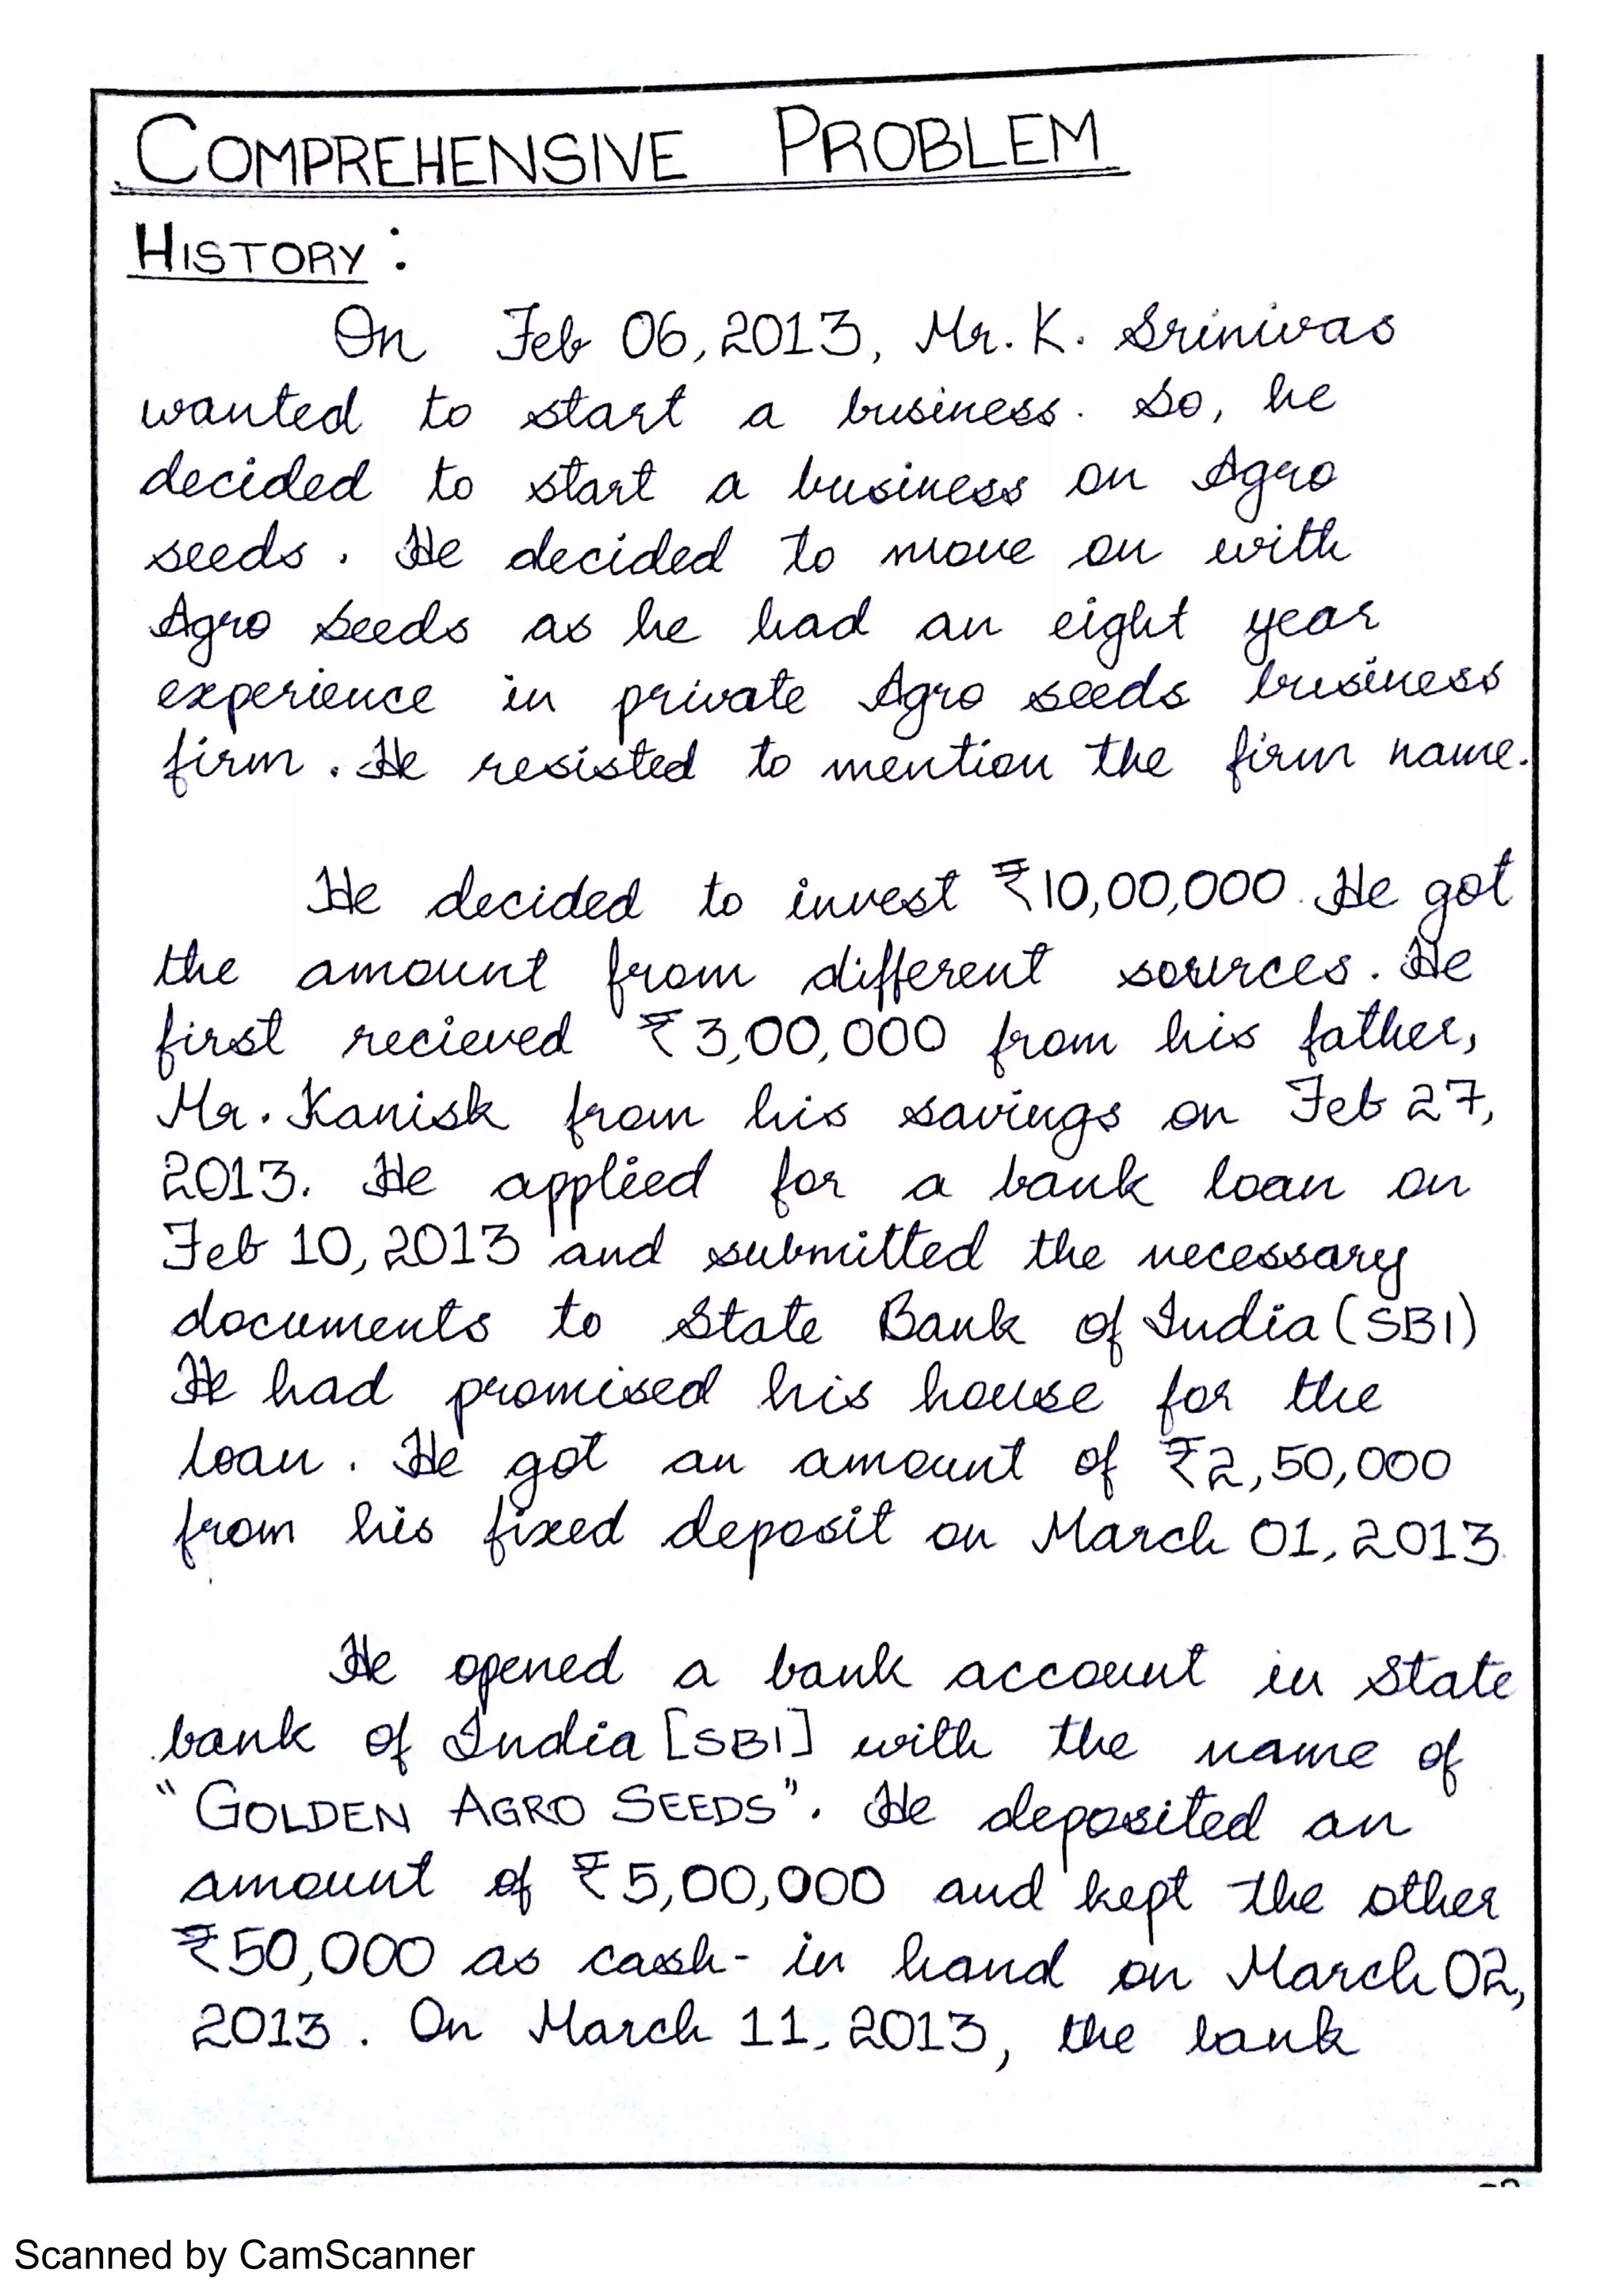 COMPREHENSIVE PROBLEM
HISTORY :
On Feb 06, 2013, Mr. K. Srinivas
wanted to start a business. So, he
decided to start a business on Agro
seeds. He decided to move on with
Agro Seeds as he had an eight year
experience in private Agro seeds business
firm. He resisted to mention the firm name.
He decided to invest ₹10,00,000. He got
the amount from different sources. He
first recieved ₹3,00,000 from his father,
Mr. Kanisk from his savings on Feb 27,
2013. He applied for a bank loan on
Feb 10, 2013 and submitted the necessary
documents to State Bank of India (SBI)
He had promised his house for the
loan. He got an amount of ₹2,50,000
from his fixed deposit on March 01, 2013.
He opened a bank account in State
bank of India [SBI] with the name of
"GOLDEN AGRO SEEDS". He deposited an
amount of ₹5,00,000 and kept the other
₹50,000 as cash-in hand on March 02,
2013. On March 11, 2013, the bank
Scanned by CamScanner